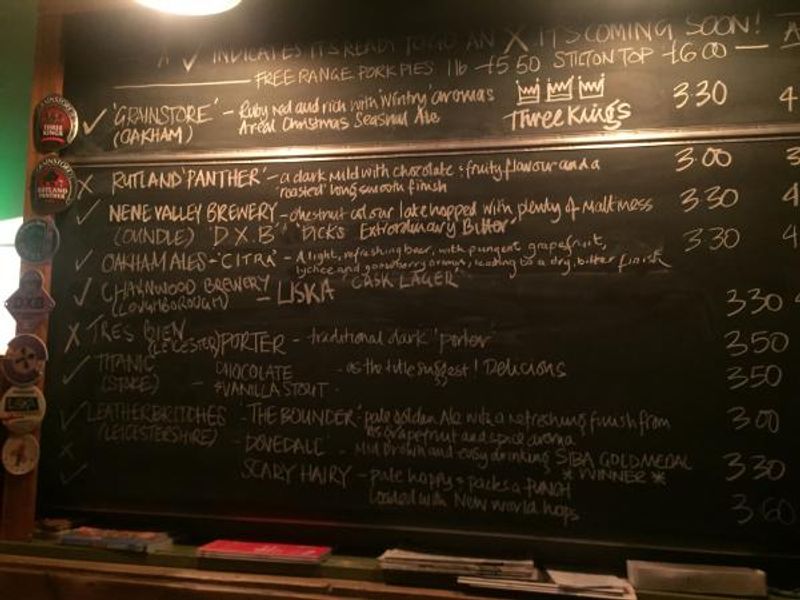 ✓ INDICATES IT'S READY TO GO AN X IT'S COMING SOON!
FREE RANGE PORK PIES 1lb £5.50 STILTON TOP £6.00
✓ 'GRAINSTORE' - Ruby Red and rich with 'Wintry' aromas 3.30 4
(OAKHAM) A real Christmas Seasonal Ale Three Kings
THREE KINGS
X RUTLAND 'PANTHER' - a dark mild with chocolate & fruity flavour and a 3.00 3
roasted long smooth finish
RUTLAND PANTHER
✓ NENE VALLEY BREWERY - chestnut colour late hopped with plenty of Maltiness 3.30 4
(OUNDLE) 'D.X.B' 'Dicks Extrordinary Bitter' 3.30 4
✓ OAKHAM ALES - 'CITRA' - A light, refreshing beer, with pungent grapefruit,
lychee and gooseberry aromas, leading to a dry, bitter finish
✓ CHARNWOOD BREWERY 'CASK LAGER'
(LOUGHBOROUGH) - LISKA 3.30 4
X TRES BIEN
(LEICESTER) PORTER - traditional dark 'porter' 3.50
✓ TITANIC CHOCOLATE - as the title suggest! Delicious 3.50
(STOKE) - & VANILLA STOUT -
✓ LEATHERBRITCHES - 'THE BOUNDER' - pale golden Ale with a refreshing finish from 3.00
(LEICESTERSHIRE) its Grapefruit and spice aroma
X - DOVEDALE - Mid brown and easy drinking SIBA GOLD MEDAL 3.30
* WINNER *
✓ SCARY HAIRY - pale hoppy & packs a PUNCH
Loaded with New world hops 3.60